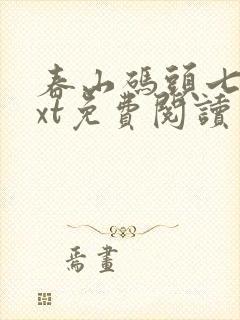 春山碼頭七
xt免費閱讀
焉畫